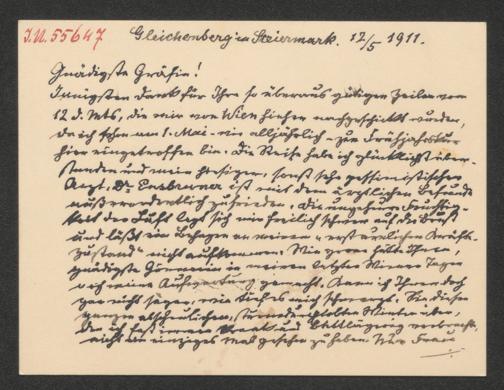 I.N. 55647
Gleichenberg in Steiermark. 12/5 1911.
Gnädigste Gräfin!
Innigsten Dank für Ihre so überaus gütigen Zeilen vom
12 d. Mts, die mir von Wien hieher nachgeschickt wurden,
da ich schon am 1. Mai - wie alljährlich - zur Frühjahrskur
hier eingetroffen bin. Die Reise habe ich glücklich über-
standen und mein hiesiger, sonst sehr pessimistischer
Arzt, Dr. ist mit dem ärztlichen Befunde
außerordentlich zufrieden. Die ungeheure Feuchtig-
keit der Luft legt sich mir freilich schwer auf die Brust
und läßt ein Behagen an meinem Kräfte-
zustand" nicht aufkommen. Wie gerne hätte Ihnen
gnädigste Gönnerin in meinen letzten Wiener Tagen
ich meine Aufwartung gemacht. Kann ich Ihnen doch
gar nicht sagen, wie dieß es mich schmerzt. In diesem
ganzen abscheulichen, Winter über,
den ich fast immer krank und verbrachte,
nicht ein einziges Mal gesehen zu haben.